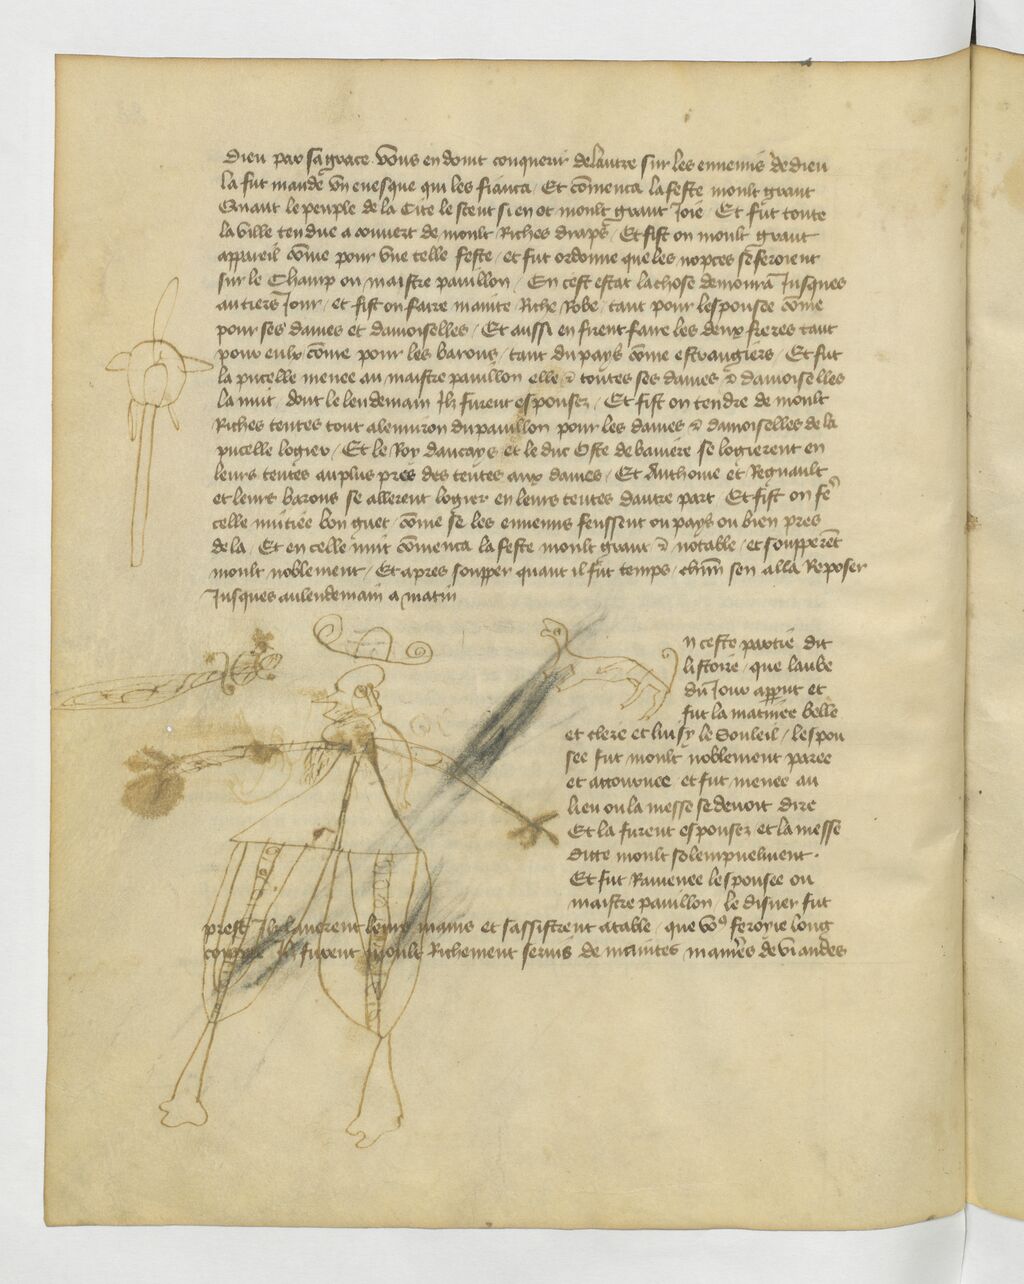 Dieu par sa grace vous en doint conquerir de lautre sur les ennemis de dieu
la fut mande vn euesque qui les fianca / Et cōmenca la feste moult grant
Quant le peuple de la Cite le sceut si en ot moult grant Joie / Et fut toute
la ville tendue a couuert de moult Riches draps / Et fist on moult grant
appareil cōme pour vne telle feste / et fut ordonne que les nopces se feroient
sur le Champ ou maistre pauillon / En cest estat la chose demoura Jusques
au tiers Jour / et fist on faire mainte Riche Robe / tant pour lespousee cōme
pour ses dames et damoiselles / Et aussi en firent faire les deux freres tant
pour eulx cōme pour les barons / tant du pays cōme estrangiers / Et fut
la pucelle menee au maistre pauillon elle & toutes ses dames & damoiselles
la nuit / dont le lendemain Ilz furent espousez / Et fist on tendre de moult
Riches tentes tout alenuiron du pauillon pour les dames & damoiselles de la
pucelle logier / Et le Roy daucays et le duc Oste de bauiere se logierent en
leurs tentes au plus pres des tentes aux dames / Et Anthoine et Regnault
et leurs barons se allerent logier en leurs tentes dautre part Et fist on fēr
celle nuitiee bon guet / cōme se les ennemis feussent ou pays ou bien pres
de la / Et en celle nuit cōmenca la feste moult grant & notable / et soupperēt
moult noblement / Et apres soupper quant il fut temps / chūn sen alla Reposer
Jusques au lendemain a matin
n ceste partie dit
listoire / que laube
du Jour apparut et
fut la matinee belle
et clere et luisy le Souleil / lespou
see fut moult noblement paree
et attournee et fut menee au
lieu ou la messe se deuoit dire
Et la furent espousez et la messe
ditte moult solempnelment .
Et fut Ramenee lespousee ou
maistre pauillon / le disner fut
prest Ilz lauerent leurs mains et sassistrent a table / que vo9 feroyie long
compte Ilz furent moult Richement seruis de maintes manies de viandes